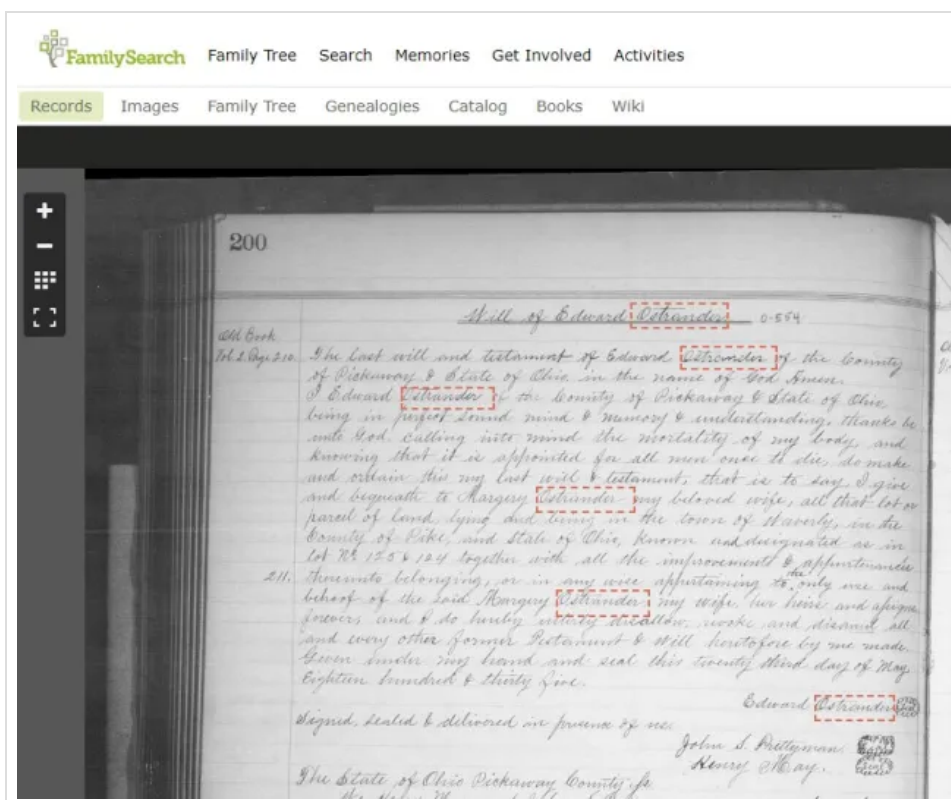 FamilySearch Family Tree Search Memories Get Involved Activities
Records Images Family Tree Genealogies Catalog Books Wiki
200
Will of Edward Ostrander 0-554
Old Book
Vol 2. Page 210.
The last will and testament of Edward Ostrander of the County
of Pickaway & State of Ohio, in the name of God Amen.
I Edward Ostrander of the County of Pickaway & State of Ohio,
being in perfect sound mind & memory & understanding, thanks be
unto God, calling into mind the mortality of my body, and
knowing that it is appointed for all men once to die, do make
and ordain this my last will & testament, that is to say, I give
and bequeath to Margery Ostrander my beloved wife, all that lot or
parcel of land, lying and being in the town of Waverly, in the
County of Pike, and State of Ohio, known and designated as in
lot No 125 & 124 together with all the improvements & appurtenances
211. thereunto belonging, or in any wise appertaining to the only use and
behoof of the said Margery Ostrander my wife, her heirs and assigns
forever, and I do hereby utterly disallow, revoke and disannul all
and every other former Testament & Will heretofore by me made.
Given under my hand and seal this twenty third day of May
Eighteen hundred & thirty five.
Edward Ostrander
Signed, sealed & delivered in presence of us.
John S. Prettyman
Henry May.
The State of Ohio Pickaway County